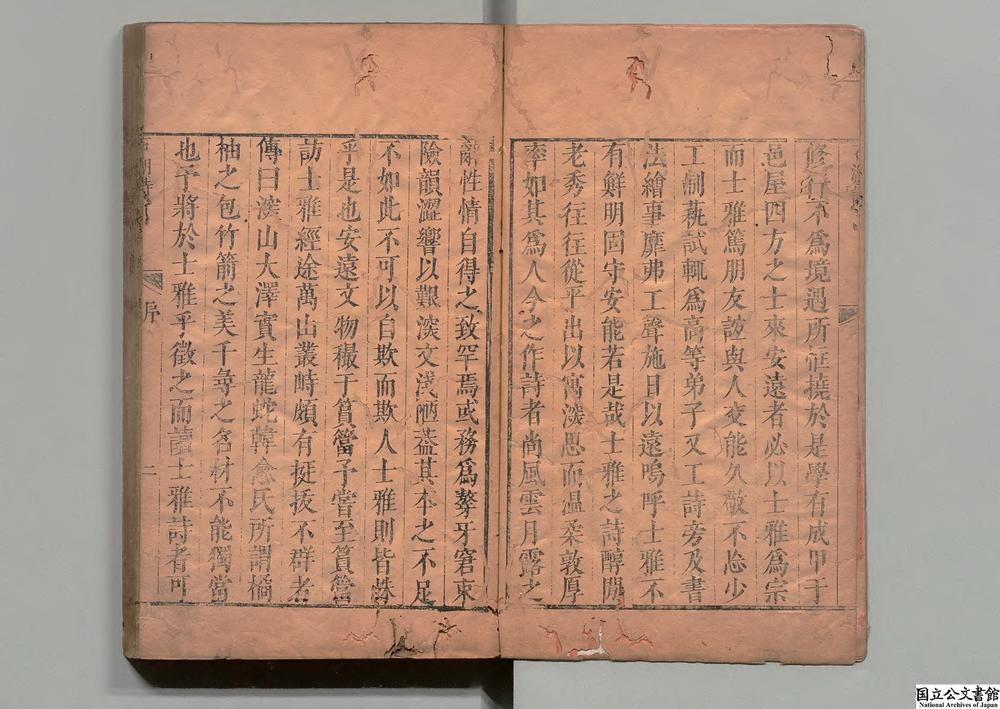 修行不為境遇所詘撓於是學有成甲于
邑屋四方之士來安遠者必以士雅為宗
而士雅篤朋友誼與人交能久敬不怂少
工制蓺試輒為高等弟子又工詩旁及書
法繪事靡弗工聲施日以遠嗚呼士雅不
有鮮明固守安能若是哉士雅之詩醇閒
老秀往往從平出以寓深思而温柔敦厚
率如其為人今之作詩者尚風雲月露之
辭性情自得之致罕焉或務為聱牙窘束
險韻澀響以艱深文淺陋葢其本之不足
不如此不可以自欺而欺人士雅則皆蛛
乎是也安遠文物稱于篔簹予嘗至篔簹
訪士雅經途萬山叢峙頗有挺拔不群者
傳曰深山大澤實生龍蛇韓愈氏所謂橘
柚之包竹箭之美千尋之名材不能獨當
也予將於士雅乎徵之而讀士雅詩者可
序
二
国立公文書館
National Archives of Japan